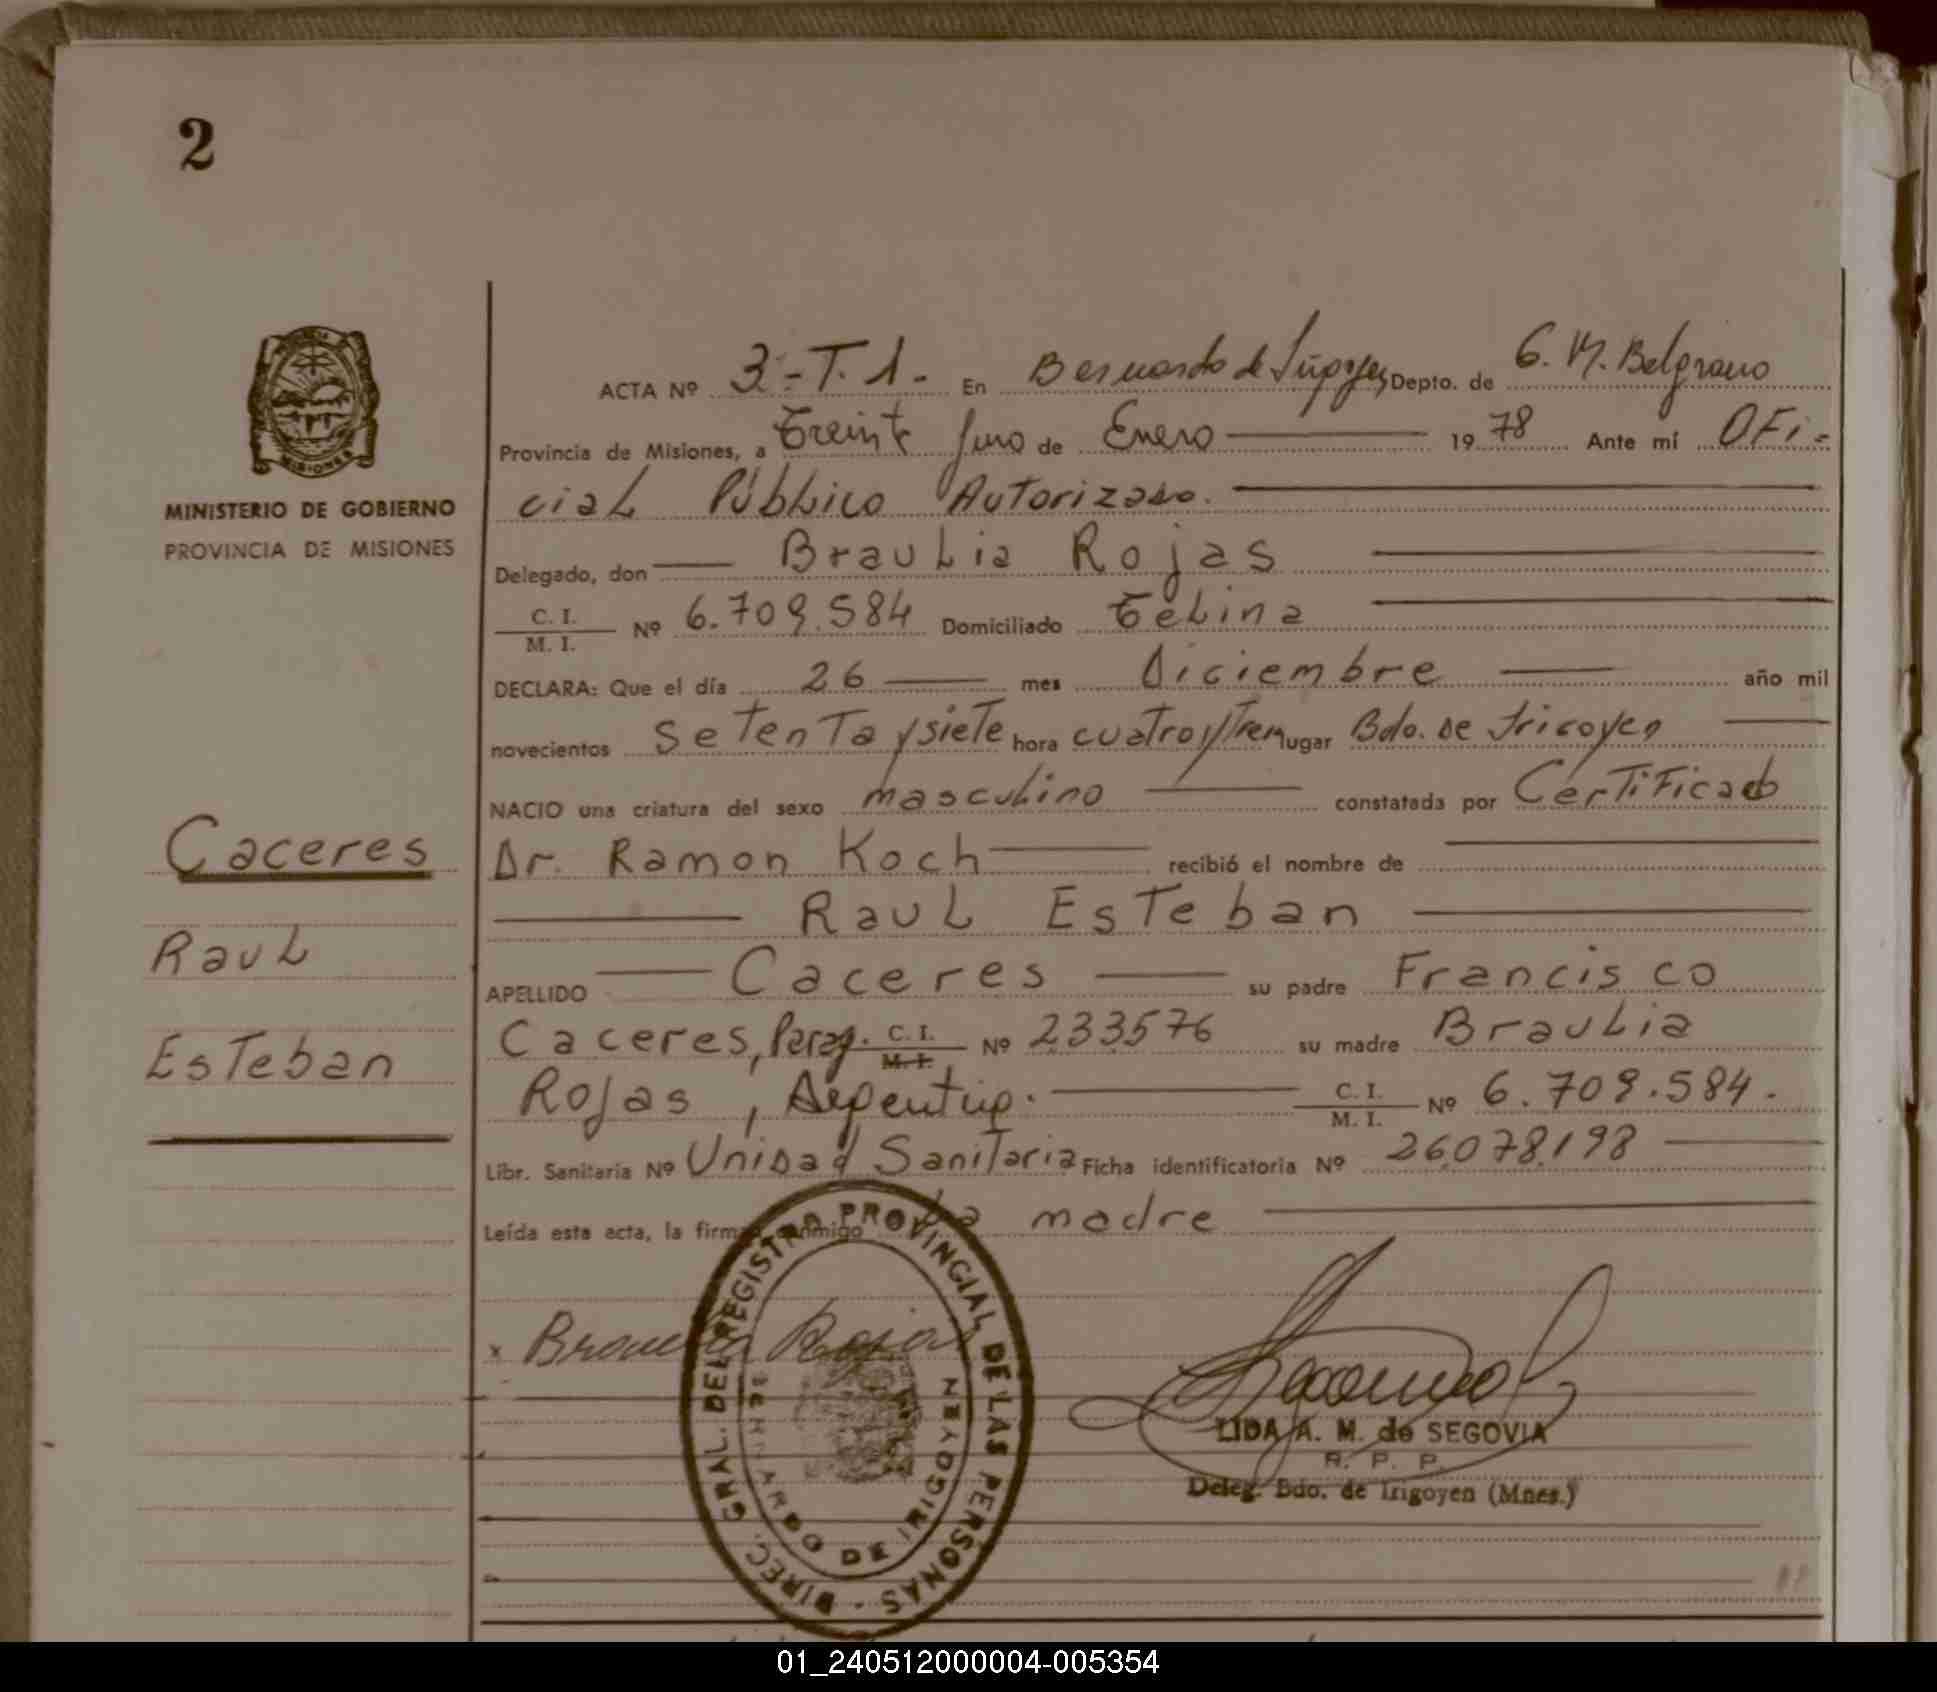 2
MINISTERIO DE GOBIERNO
PROVINCIA DE MISIONES
Caceres
Raul
Esteban
ACTA Nº 3-T.1.- En Bernardo de Irigoyen, Depto. de G. M. Belgrano
Provincia de Misiones, a Treinta y uno de Enero 19 78 Ante mí OFi-
cial Público Autorizado.
Delegado, don Braulia Rojas
C. I.
M. I. Nº 6.709.584 Domiciliado
DECLARA: Que el día 26 mes Diciembre año mil
novecientos setenta y siete hora cuatro y lugar Bdo. de Iricoyen
NACIO una criatura del sexo masculino constatada por Certificado
Dr. Ramon Koch recibió el nombre de
Raul Esteban
APELLIDO Caceres su padre Francisco
Caceres, Parag. C. I.
M. I. Nº 233576 su madre Braulia
Rojas, Argentina. C. I.
M. I. Nº 6.709.584.
Libr. Sanitaria Nº Unidad Sanitaria Ficha identificatoria Nº 26078198
Leída esta acta, la firman conmigo La madre
x Braulia Rojas
DIREC. GRAL. DEL REGISTRO PROVINCIAL DE LAS PERSONAS -
BERNARDO DE IRIGOYEN
LIDA A. M. de SEGOVIA
R. P. P.
Deleg. Bdo. de Irigoyen (Mnes.)
01_240512000004-005354